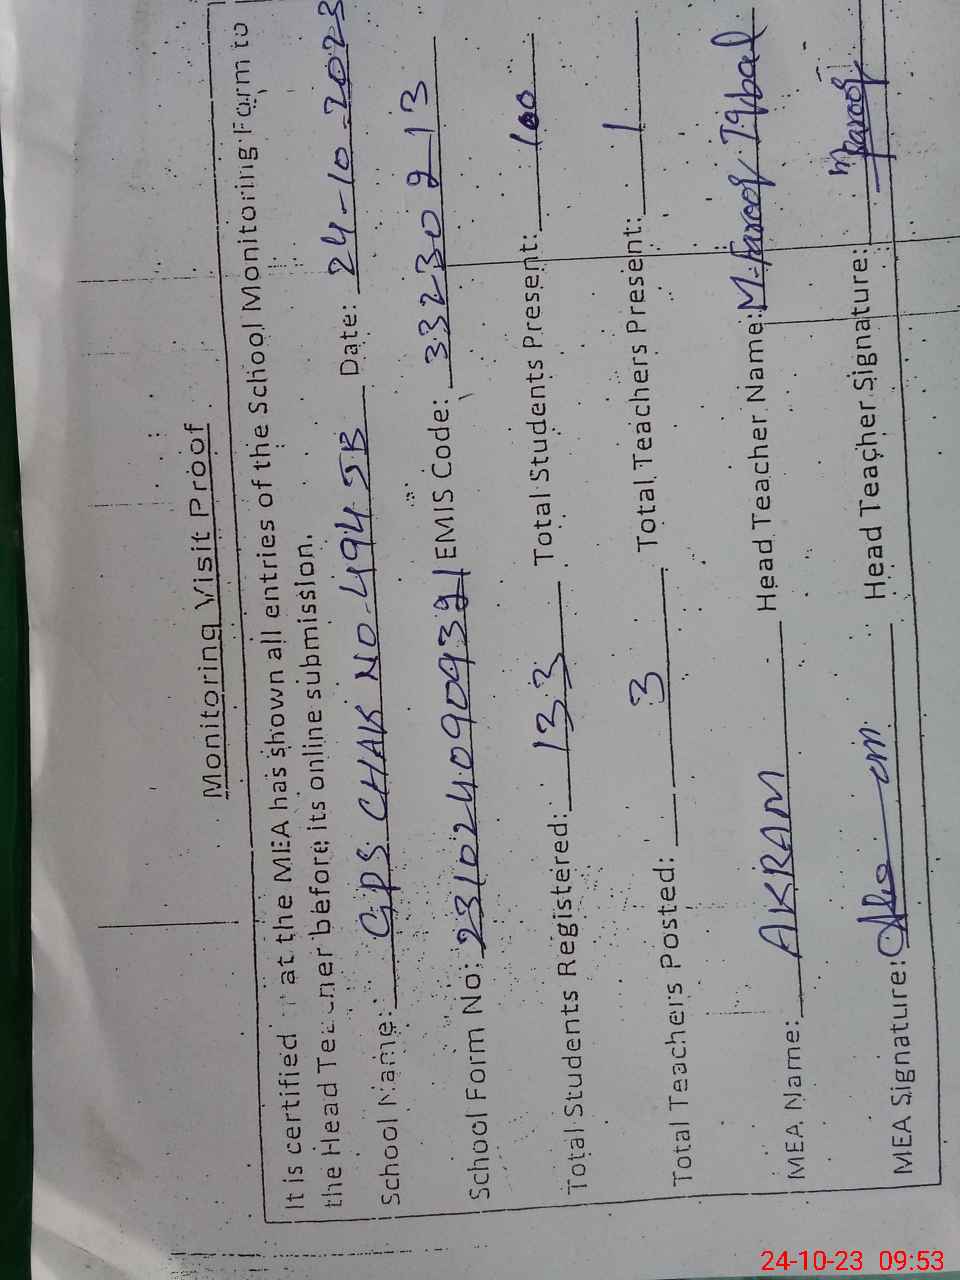 Monitoring Visit Proof
It is certified at the MEA has shown all entries of the School Monitoring Form to
the Head Teacher before its online submission.
School Name: GPS CHAK NO. 494 JB Date: 24-10-2023
School Form No: EMIS Code: 33230213
Total Students Registered: 133 Total Students Present: 100
Total Teachers Posted: 3 Total Teachers Present: 1
MEA Name: AKRAM Head Teacher Name: M. Farooq Iqbal
MEA Signature: Head Teacher Signature: M Farooq
24-10-23 09:53